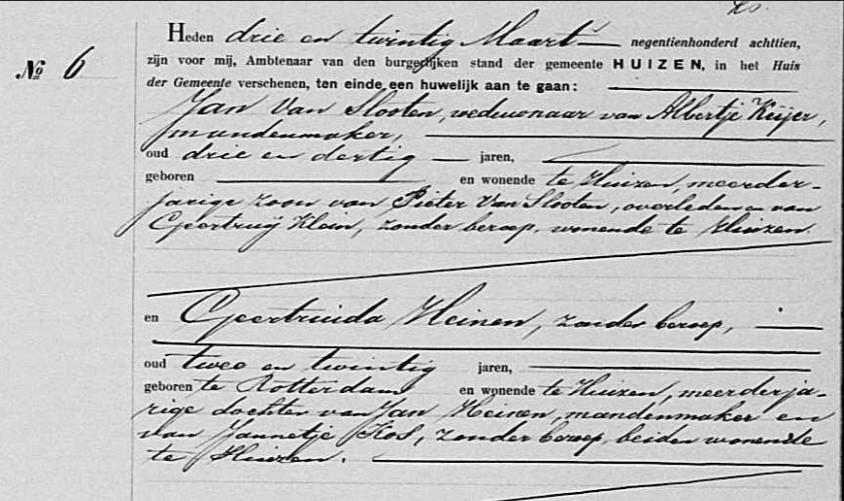 Nº 6
Heden drie en twintig Maart negentienhonderd achttien,
zijn voor mij, Ambtenaar van den burgerlijken stand der gemeente HUIZEN, in het Huis
der Gemeente verschenen, ten einde een huwelijk aan te gaan:
Jan Van Slooten, weduwnaar van Albertje Keijer,
mandenmaker,
oud drie en dertig jaren,
geboren en wonende te Huizen, meerder-
jarige zoon van Pieter Van Slooten, overleden en van
Geertruij Klein, zonder beroep, wonende te Huizen.
en Geertruida Heinen, zonder beroep,
oud twee en twintig jaren,
geboren te Rotterdam en wonende te Huizen, meerderja-
rige dochter van Jan Heinen, mandenmaker en
van Jannetje Kos, zonder beroep, beiden wonende
te Huizen.